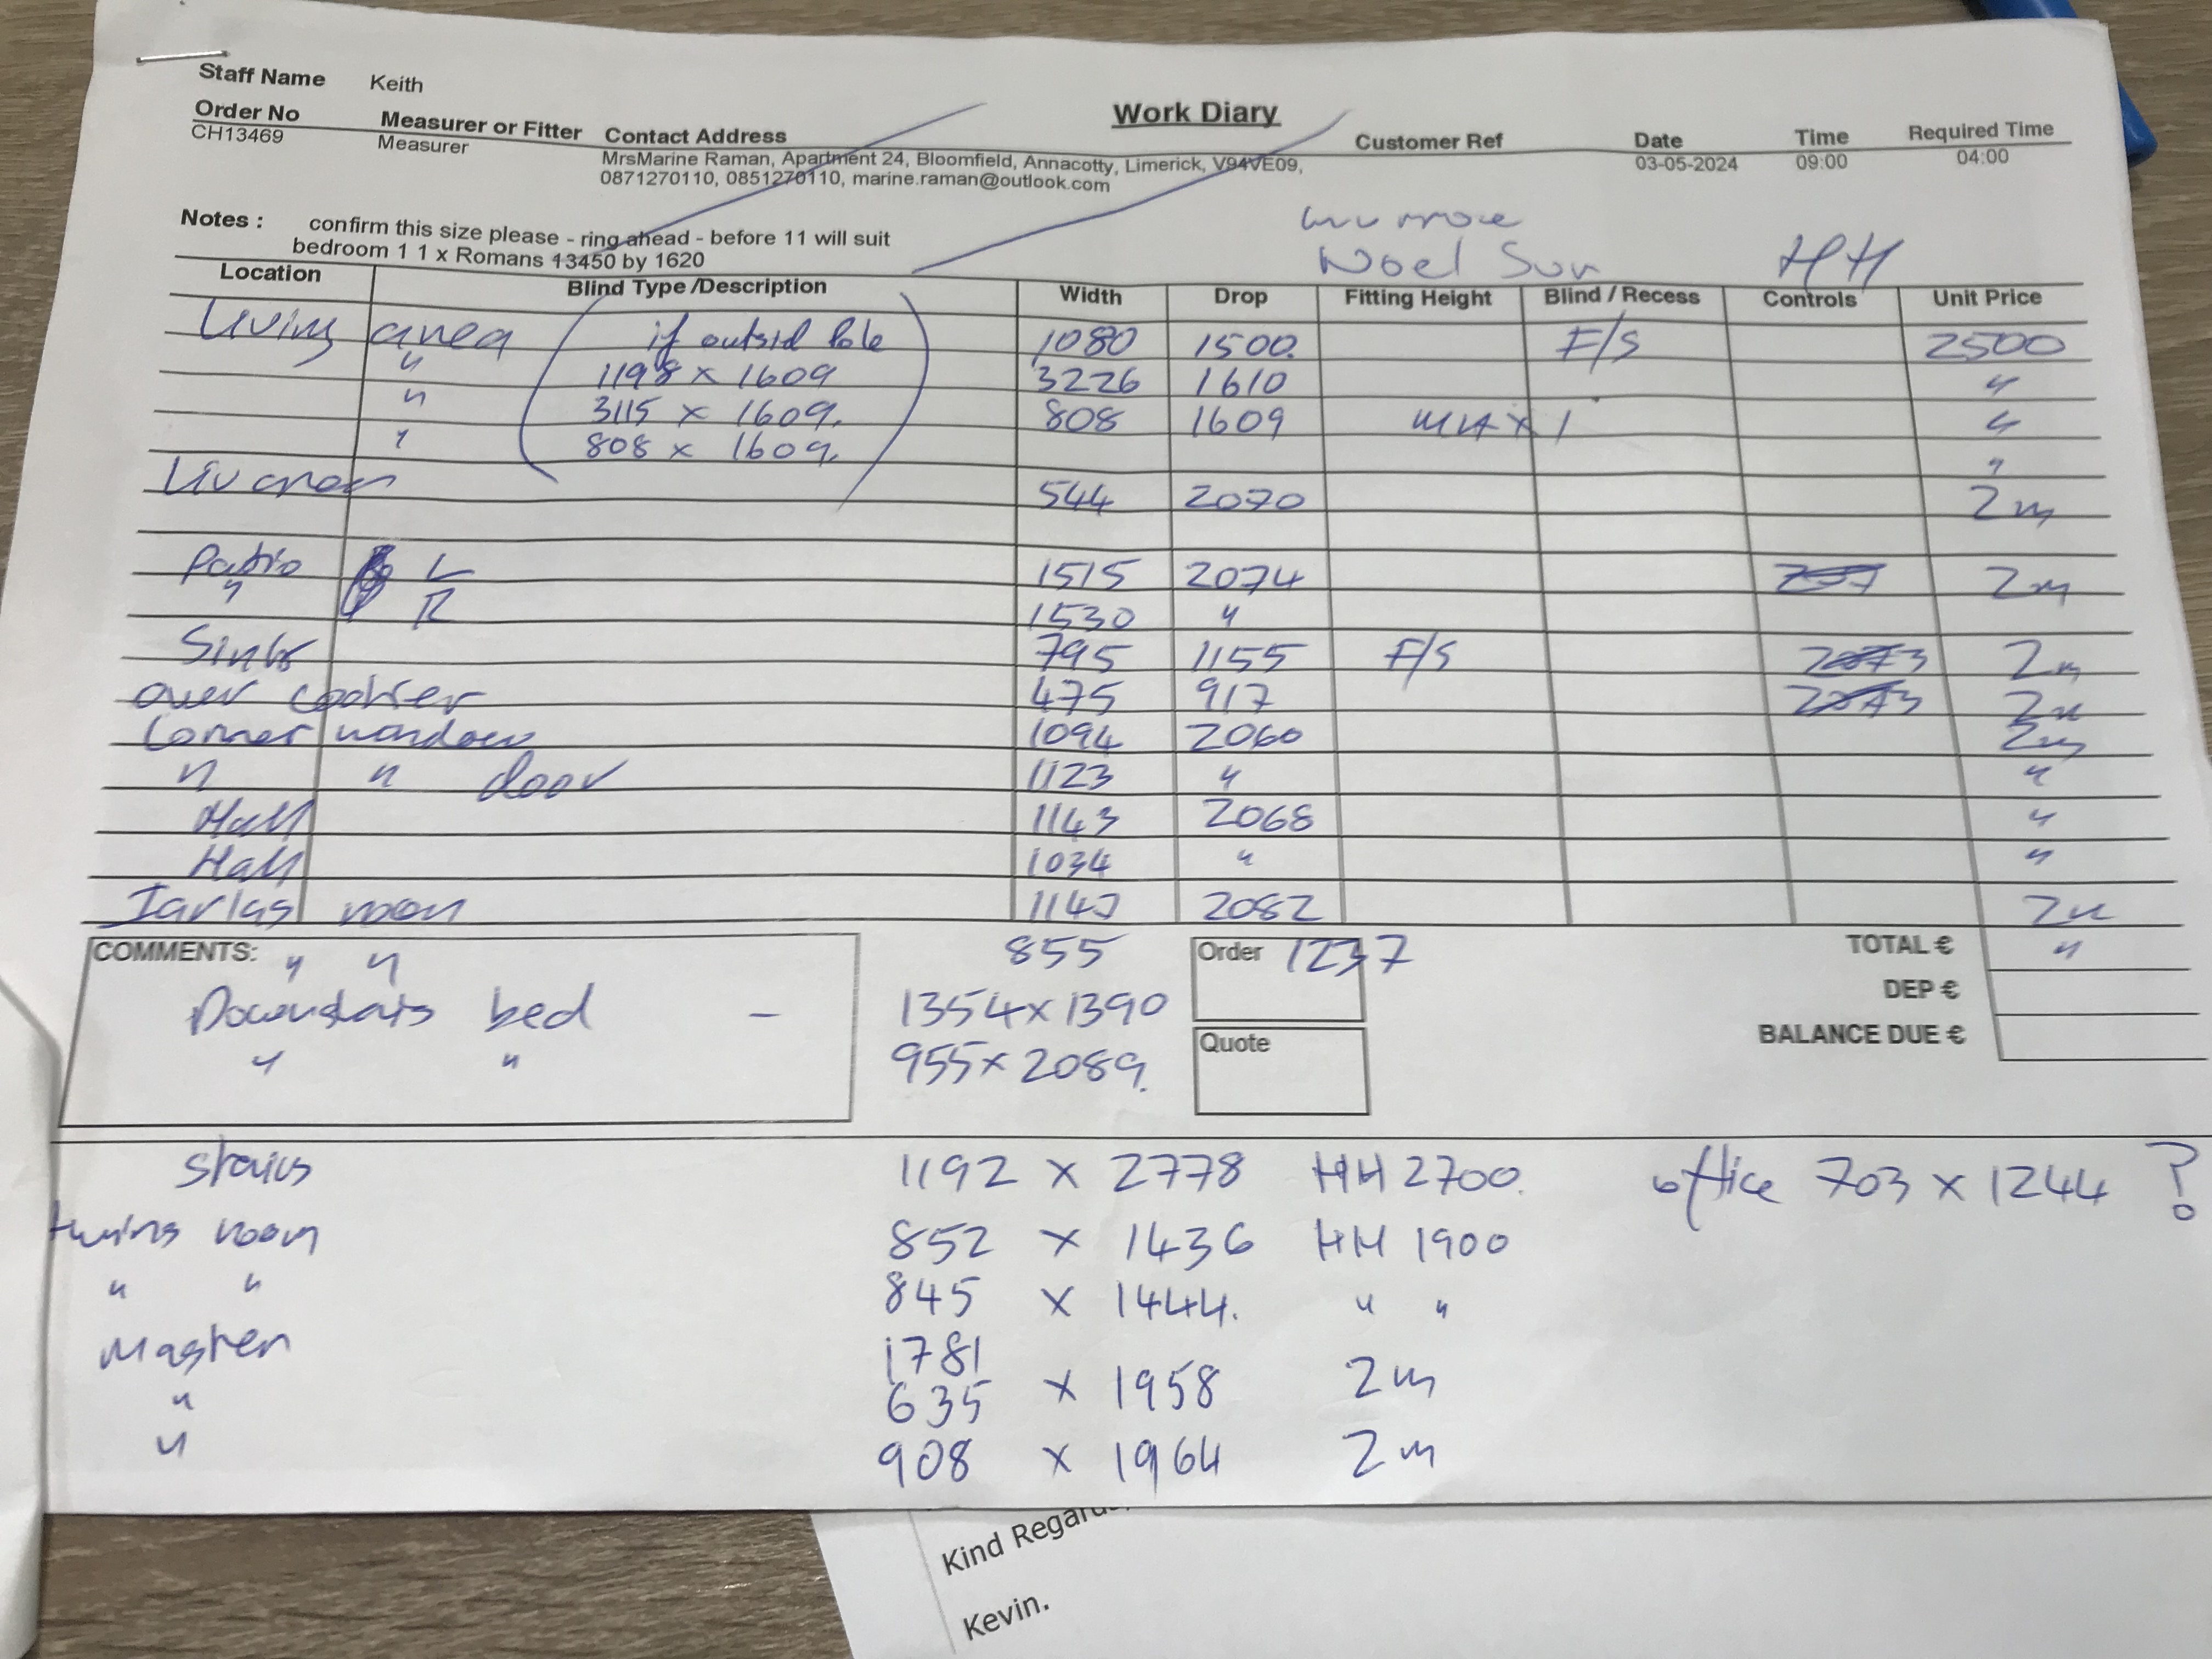 Staff Name Keith
Work Diary
Order No Measurer or Fitter Contact Address Customer Ref Date Time Required Time
CH13469 Measurer MrsMarine Raman, Apartment 24, Bloomfield, Annacotty, Limerick, V94VE09, 03-05-2024 09:00 04:00
0871270110, 0851270110, marine.raman@outlook.com
Notes : confirm this size please - ring ahead - before 11 will suit
bedroom 1 1 x Romans 13450 by 1620
Noel HH
Location Blind Type /Description Width Drop Fitting Height Blind / Recess Controls Unit Price
Living area if outsid 1080 1500. F/S 2500
" 1198 x 1609 3226 1610 "
" 3115 x 1609. 808 1609 "
" 808 x 1609. "
Liv 544 2070 2m
Patio L 1515 2074 2m
" R 1530 "
Sink 795 1155 F/S 2073 2m
over cooker 475 917 2073 2m
Corner window 1094 2060 2m
" " door 1123 " "
Hall 1143 2068 "
Hall 1034 " "
Iarlas room 2082 2m
COMMENTS: " " 855 Order 1237 TOTAL € "
Downstairs bed - 1354 x 1390 DEP €
" " 955 x 2089. Quote BALANCE DUE €
Stairs 1192 x 2778 HH 2700. office 703 x 1244 ?
twins room 852 x 1436 HH 1900
" " 845 x 1444. " "
Master 1781
" 635 x 1958 2m
" 908 x 1964 2m
Kind Regards,
Kevin.